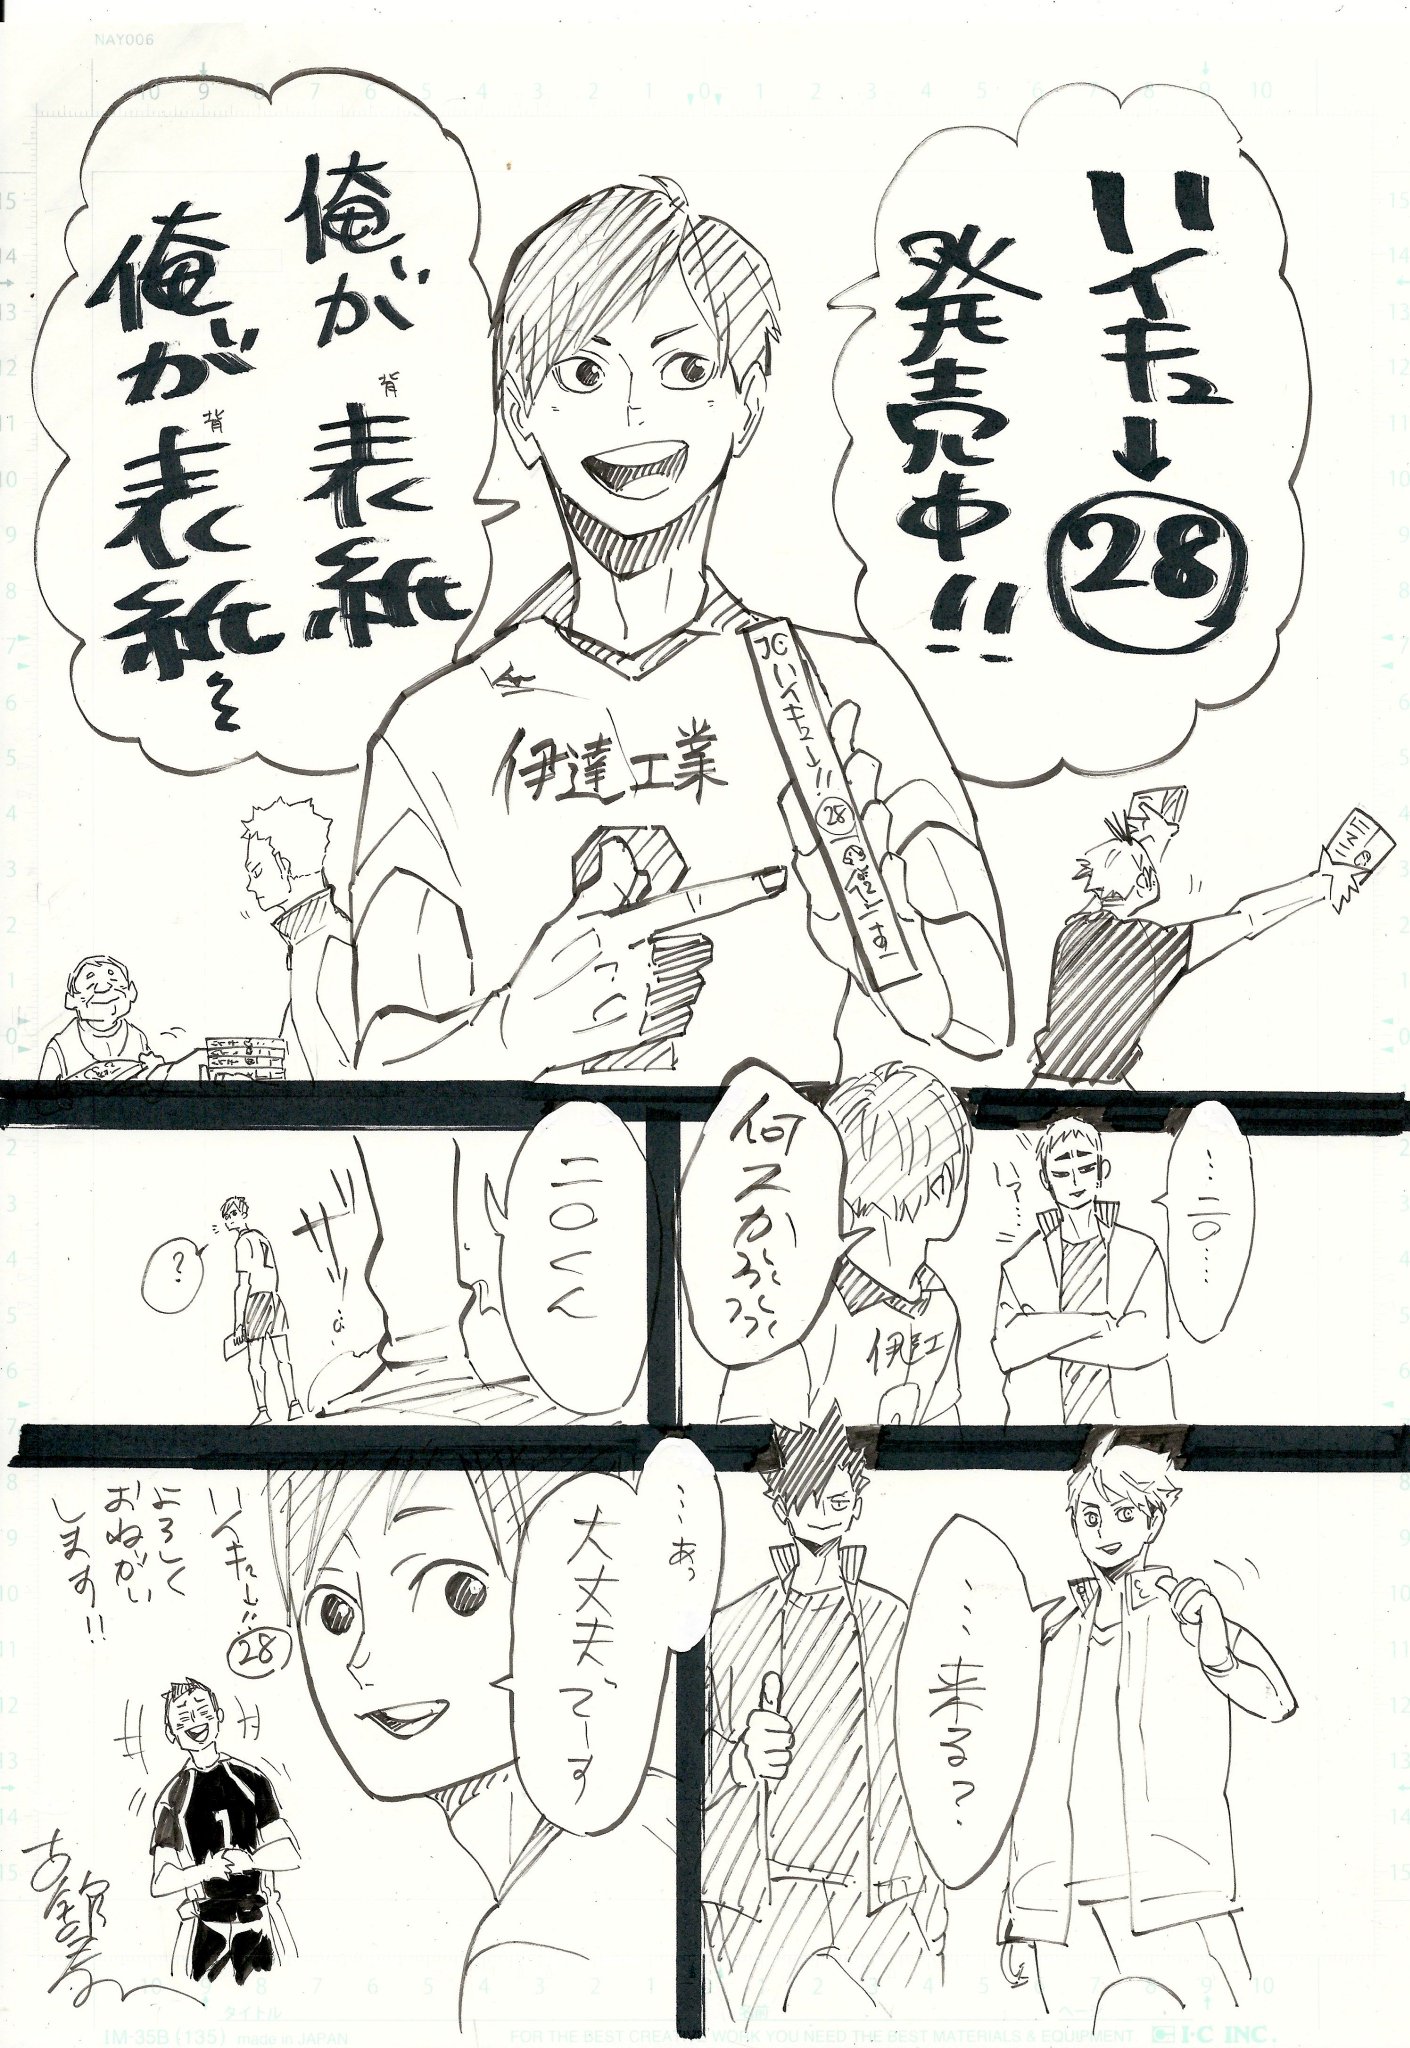 NAY006
ハイキュー㉘
発売中!!
俺が背表紙
俺が背表紙を
伊達工業
JCハイキュー!! ㉘
…二口…
じっ……
何スか
伊達工
二口くん
サッ
?
…来る?
…あっ
大丈夫でーす
ハイキュー!!㉘
よろしく
おねがい
します!!
1
古舘春一
タイトル
名前
ページ
IM-35B (135) made in JAPAN
FOR THE BEST CREATIVE WORK YOU NEED THE BEST MATERIALS & EQUIPMENT.
I·C INC.